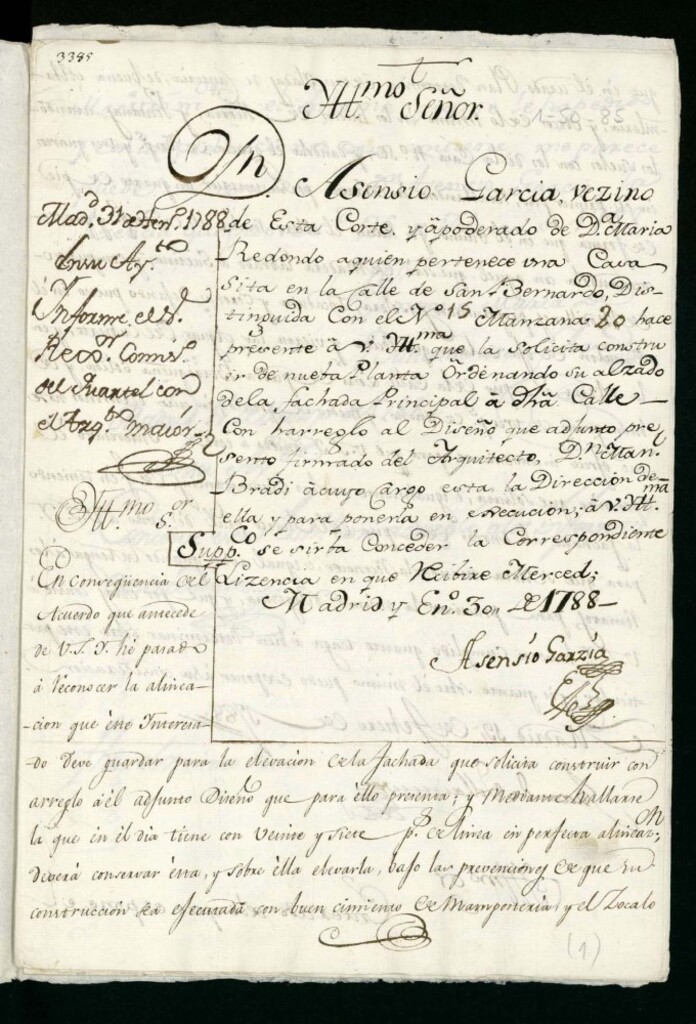 3385
Yll.mo Señor.
Dn. Asensio Garcia, vezino
de Esta Corte, y äpoderado de D.a Maria
Redondo aquien pertenece una Casa
Sita en la Calle de San Bernardo, Dis-
tinguida Con el N.o 15 Manzana 20 hace
presente à V. Yll.ma que la solicita constru
ir de nueba Planta Ordenando su alzado
dela fachada Principal à dha Calle
Con harreglo al Diseño que adjunto pre
sento firmado del Arquitecto, D.n Man.
Bradi àcuyo Cargo esta la Direccion de
ella y para ponerla en execucion; à V. Yll.ma
Supp.co se sirba Conceder la Correspondiente
Lizencia en que Recibire Merced;
Madrid y En.o 30 de 1788
Asensio Garzia
Mad.d 31 de En.o 1788
En su Ay.to
Ynforme el S.r
Rexor. Comis.o
del Quartel con
el Arq.to maior
Yll.mo S.or
En consequencia del
Acuerdo que antecede
de V.S.Y. hé pasado
à reconocer la alinea-
cion que ese Interesa-
do deve guardar para la elevacion de la fachada que solicita construir con
arreglo à él adjunto Diseño que para ello presenta; y Mediante hallarse
la que en él dia tiene con veinte y siete p.s de linea en perfecta alineaz.on
deverá conservar ésta, y sobre élla elevarla, bajo las prevenciones de que su
construcción sea ejecutada con buen cimiento de Mamposteria, y el Zocalo
(1)